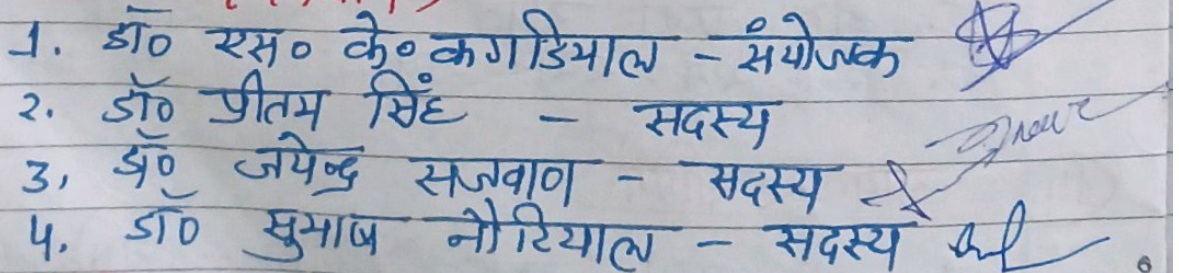 1. डॉ० एस० के० कगडियाल - संयोजक
2. डॉ० प्रीतम सिंह - सदस्य
3. डॉ० जयेन्द्र सजवाण - सदस्य
4. डॉ० सुभाष नौटियाल - सदस्य